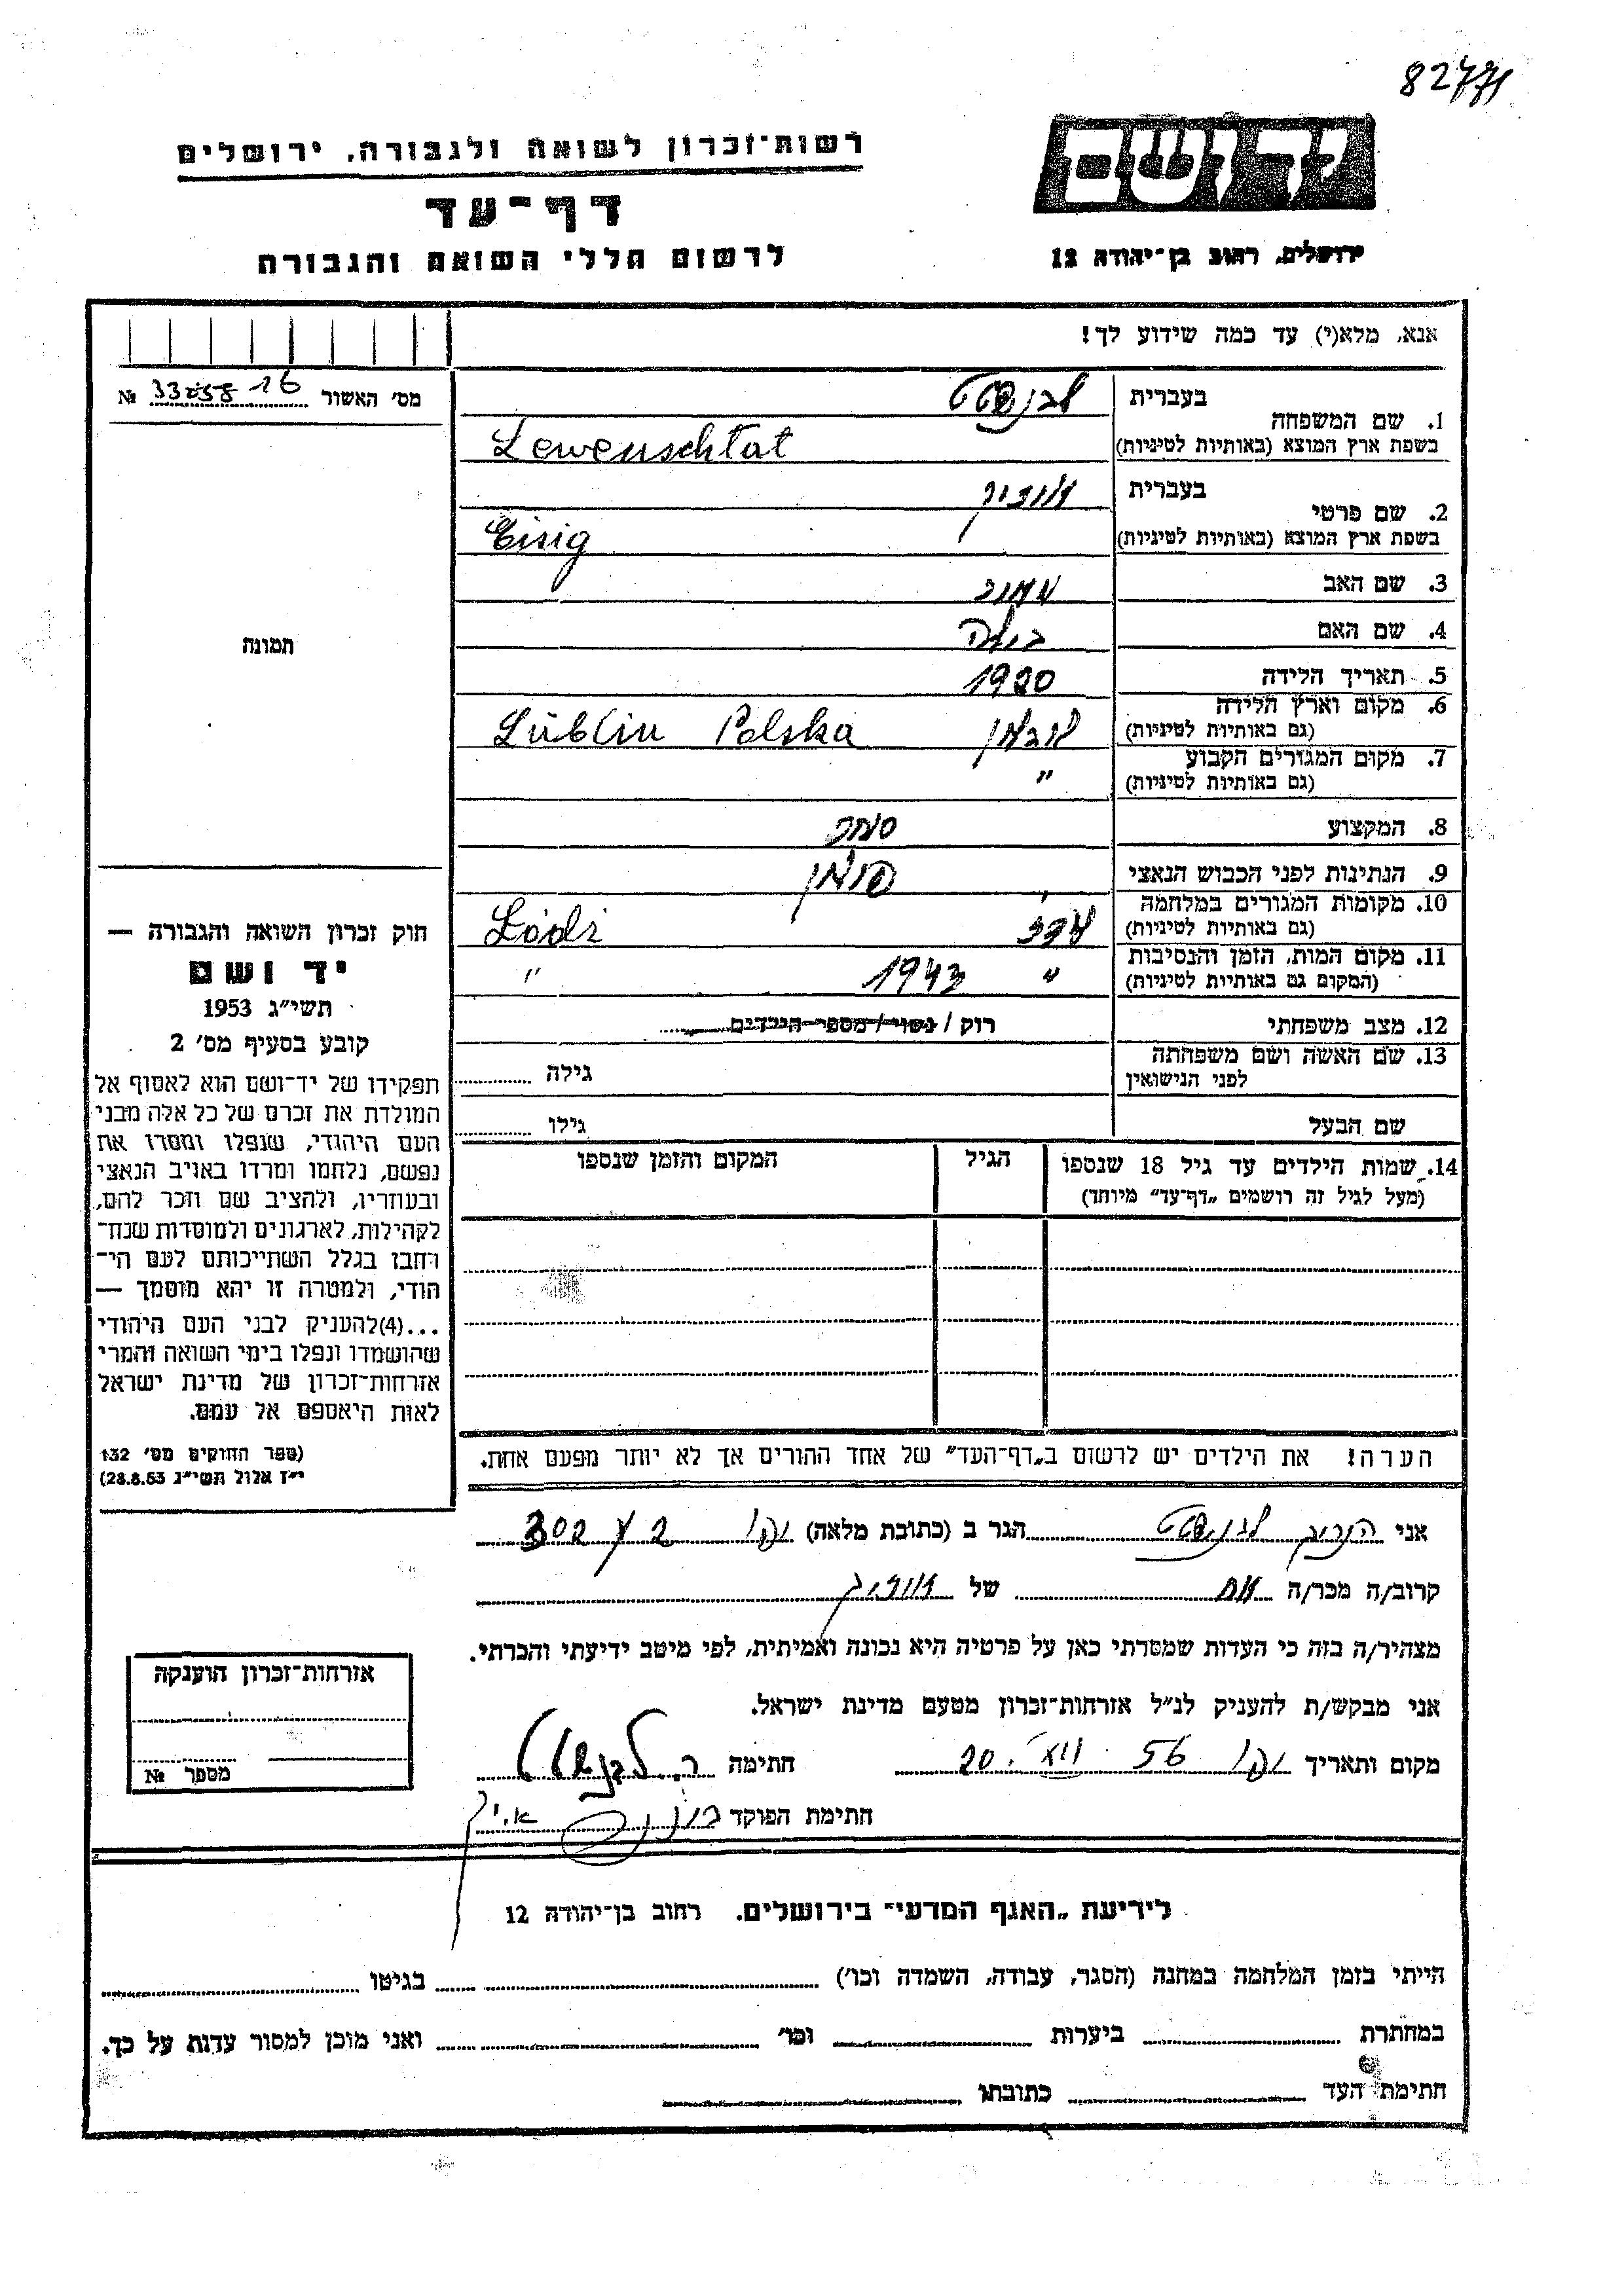 82771
רשות־זכרון לשואה ולגבורה, ירושלים
דף־עד
לרשום חללי השואה והגבורה
ירושלים, רחוב בן־יהודה 12
אנא, מלא(י) עד כמה שידוע לך!
מס׳ האשור № 33058 16
תמונה
חוק זכרון השואה והגבורה —
יד ושם
תשי״ג 1953
קובע בסעיף מס׳ 2
תפקידו של יד־ושם הוא לאסוף אל
המולדת את זכרם של כל אלה מבני
העם היהודי, שנפלו ומסרו את
נפשם, נלחמו ומרדו באויב הנאצי
ובעוזריו, ולהציב שם וזכר להם,
לקהילות, לארגונים ולמוסדות שנח־
רחבו בגלל השתייכותם לעם הי־
הודי, ולמטרה זו יהא מוסמך —
...(4)להעניק לבני העם היהודי
שהושמדו ונפלו בימי השואה והמרי
אזרחות־זכרון של מדינת ישראל
לאות היאספם אל עמם.
(ספר החוקים מס׳ 132
י״ז אלול תשי״ג 28.8.53)
1. שם המשפחה
בעברית לבנשטט
בשפת ארץ המוצא (באותיות לטיניות) Lewenschtat
2. שם פרטי
בעברית
בשפת ארץ המוצא (באותיות לטיניות) Eisig
3. שם האב
4. שם האם
5. תאריך הלידה 1920
6. מקום וארץ הלידה
(גם באותיות לטיניות) לובלין Lublin Polska
7. מקום המגורים הקבוע
(גם באותיות לטיניות) ״
8. המקצוע סוחר
9. הנתינות לפני הכבוש הנאצי פולין
10. מקומות המגורים במלחמה
(גם באותיות לטיניות) לודז Lodz
11. מקום המות, הזמן והנסיבות
(המקום גם באותיות לטיניות) ״ 1943 ״
12. מצב משפחתי רוק / נשוי / מספר הילדים
13. שם האשה ושם משפחתה
לפני הנישואין גילה
שם הבעל גילו
14. שמות הילדים עד גיל 18 שנספו הגיל המקום והזמן שנספו
(מעל לגיל זה רושמים „דף־עד״ מיוחד)
הערה! את הילדים יש לרשום ב„דף־העד״ של אחד ההורים אך לא יותר מפעם אחת.
אני לבנשטט הגר ב (כתובת מלאה) יפו 302
קרוב/ה מכר/ה אח של
מצהיר/ה בזה כי העדות שמסרתי כאן על פרטיה היא נכונה ואמיתית, לפי מיטב ידיעתי והכרתי.
אני מבקש/ת להעניק לנ״ל אזרחות־זכרון מטעם מדינת ישראל.
מקום ותאריך יפו 20. 56 חתימה
חתימת הפוקד
אזרחות־זכרון הוענקה
מספר №
לידיעת „האגף המדעי״ בירושלים. רחוב בן־יהודה 12
הייתי בזמן המלחמה במחנה (הסגר, עבודה, השמדה וכו׳) בגיטו
במחתרת ביערות וכו׳ ואני מוכן למסור עדות על כך.
חתימת העד כתובתו